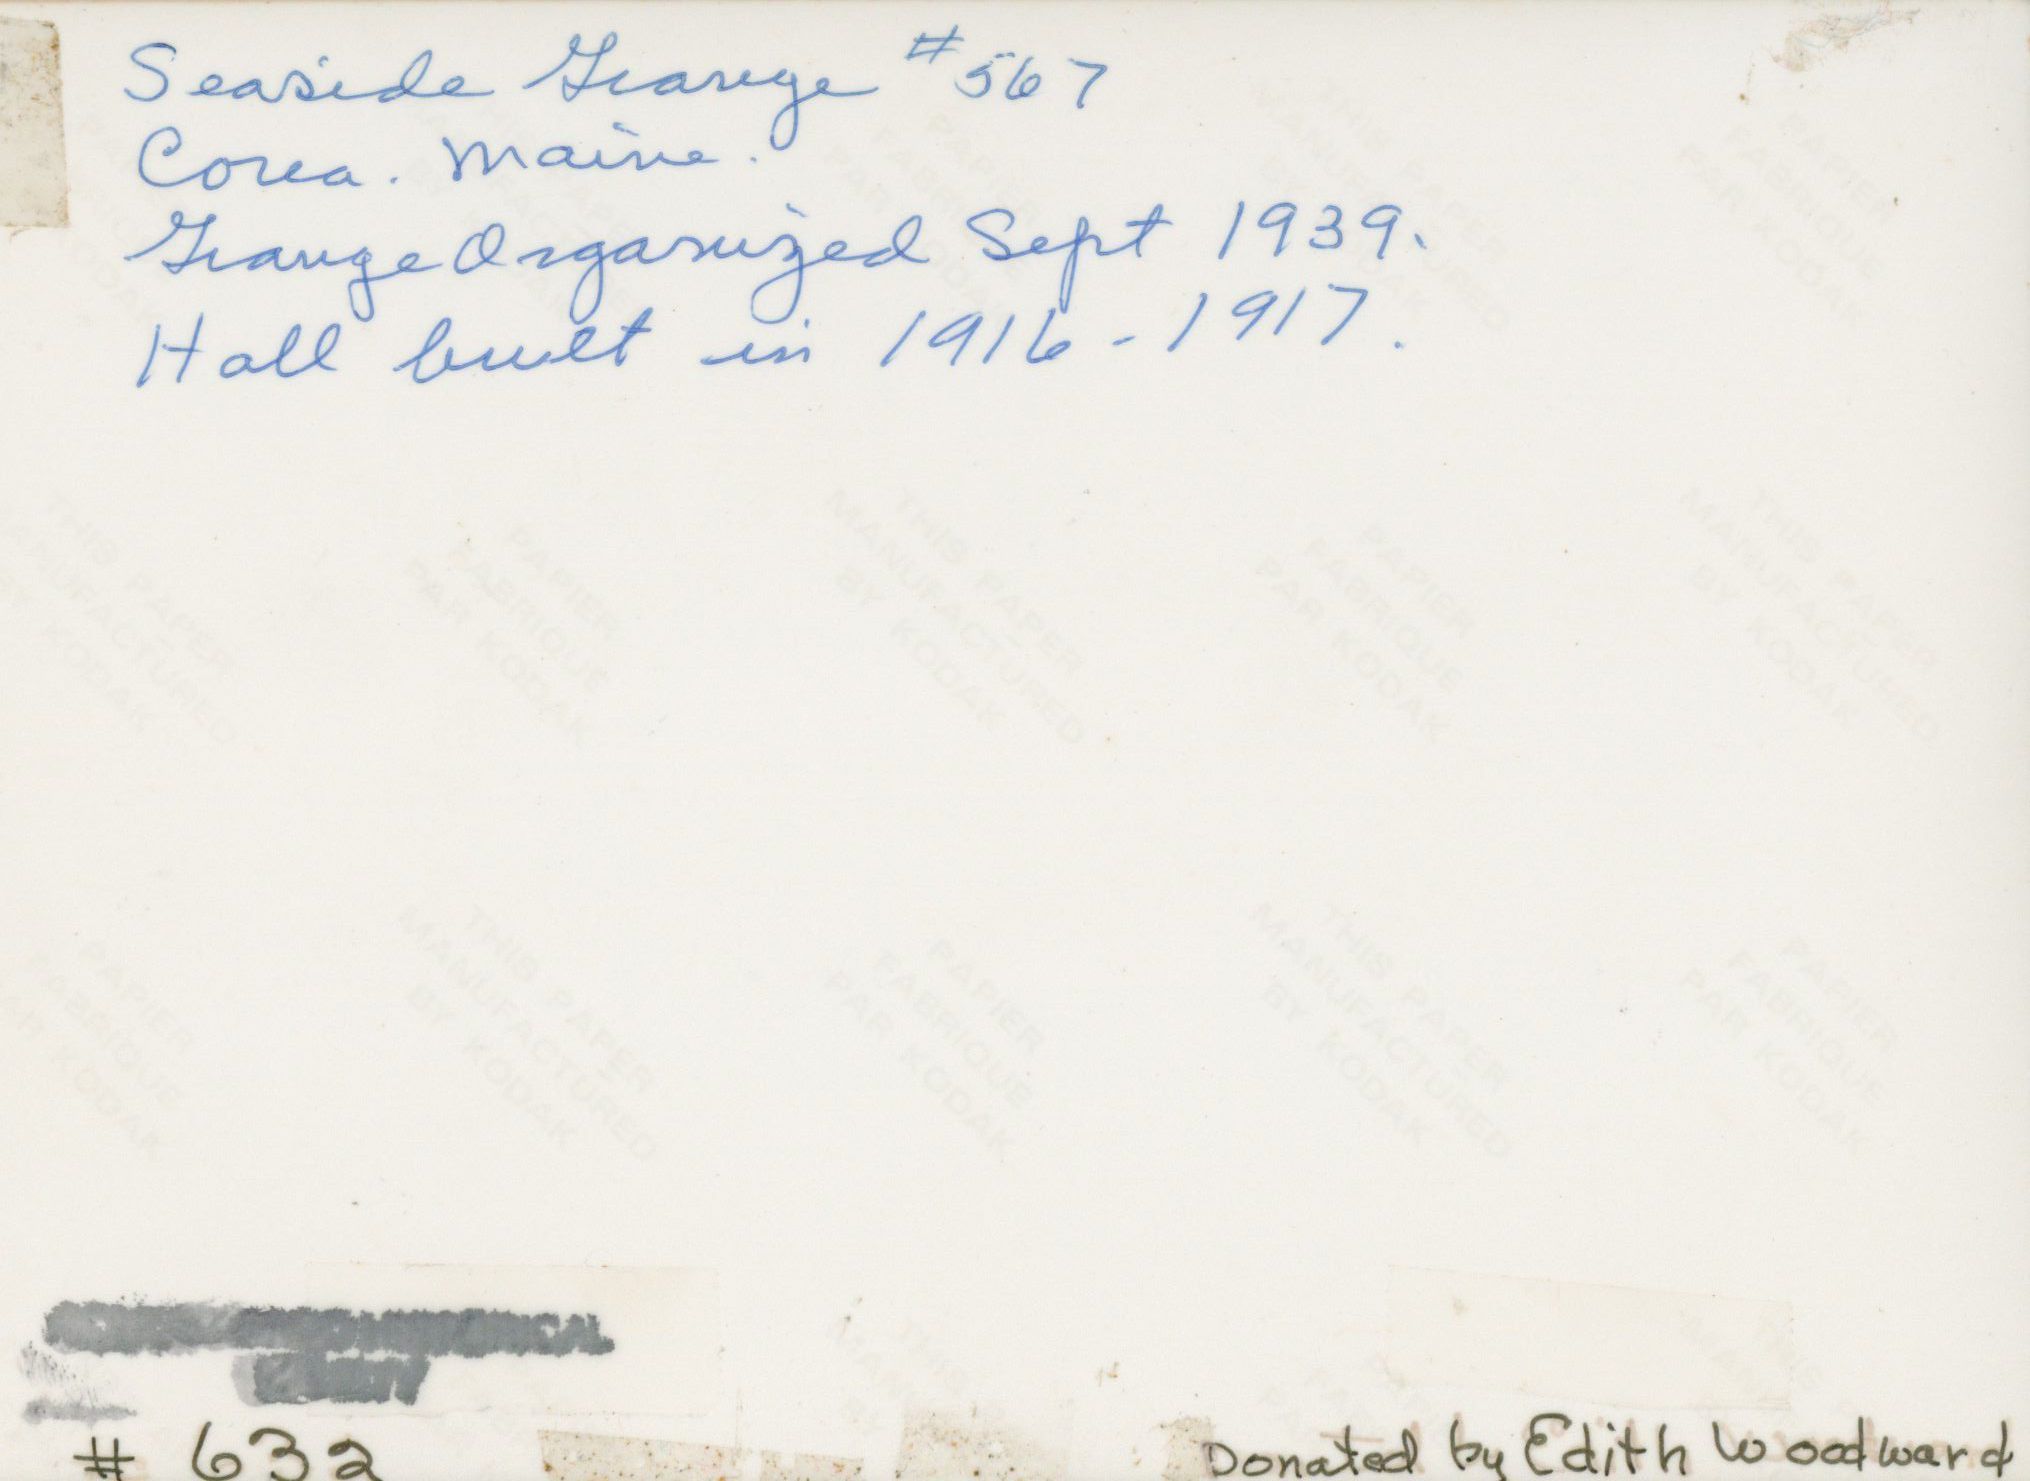 Seaside Grange #567
Corea. Maine.
Grange Organized Sept 1939.
Hall built in 1916-1917.
THIS PAPER
MANUFACTURED
BY KODAK
PAPIER
FABRIQUE
PAR KODAK
# 632
Donated by Edith Woodward